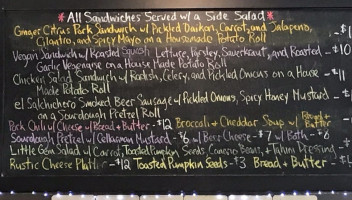 *All Sandwiches Served w/ a Side Salad*
Ginger Citrus Pork Sandwich w/ Pickled Daikon, Carrot, and Jalapeño,
Cilantro, and Spicy Mayo on a Housemade Potato Roll
Vegan Sandwich w/ Roasted Squash, Lettuce, Parsley, Sauerkraut, and Roasted - 10
Garlic Vegenaise on a House Made Potato Roll
Chicken Salad Sandwich w/ Radish, Celery, and Pickled Onions on a House - 11
Made Potato Roll
el Salchichero Smoked Beer Sausage w/ Pickled Onions, Spicy Honey Mustard -
on a Sourdough Pretzel Roll
Pork Chili w/ Cheese w/ Bread + Butter - $12 Broccoli + Cheddar Soup w/ Bread + Butter
Sourdough Pretzel w/ Mustard - $6 w/ Beer Cheese - $7 w/ Both - $8
Little Gem Salad w/ Carrot, Toasted Pumpkin Seeds, Beans, + Tahini Dressing -
Rustic Cheese Plate - $12 Toasted Pumpkin Seeds - $3 Bread + Butter -